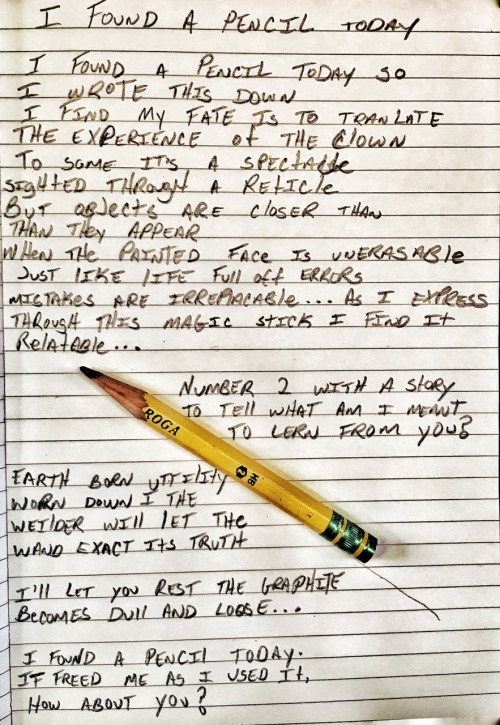 I FOUND A PENCIL TODAY
I FOUND A PENCIL TODAY SO
I WROTE THIS DOWN
I FIND MY FATE IS TO TRANLATE
THE EXPERIENCE of THE Clown
To some ITS A SPECTACLE
SIGHTED THROUGH A RETICLE
BUT OBJECTS ARE CLOSER THAN
THAN THEY APPEAR
WHEN THE PAINTED FACE IS UNERASABLE
JUST LIKE LIFE FULL OFF ERRORS
MISTAKES ARE IRREPLACABLE... AS I EXPRESS
THROUGH THIS MAGIC STICK I FIND IT
RELATABLE...
NUMBER 2 WITH A STORY
TO TELL WHAT AM I MEANT
TO LERN FROM YOU?
ROGA
HB
2
EARTH BORN UTILITY
WORN DOWN I THE
WEILDER WILL LET THE
WAND EXACT ITS TRUTH
I'll LET YOU REST THE GRAPHITE
BECOMES DULL AND LOOSE...
I FOUND A PENCIL TODAY.
IT FREED ME AS I USED IT,
HOW ABOUT YOU?